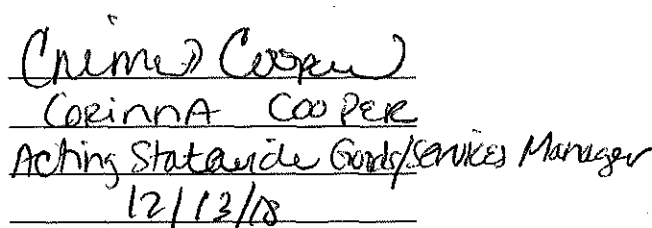 Corinna Cooper
CORINNA COOPER
Acting Statewide Goods/Services Manager
12/13/18